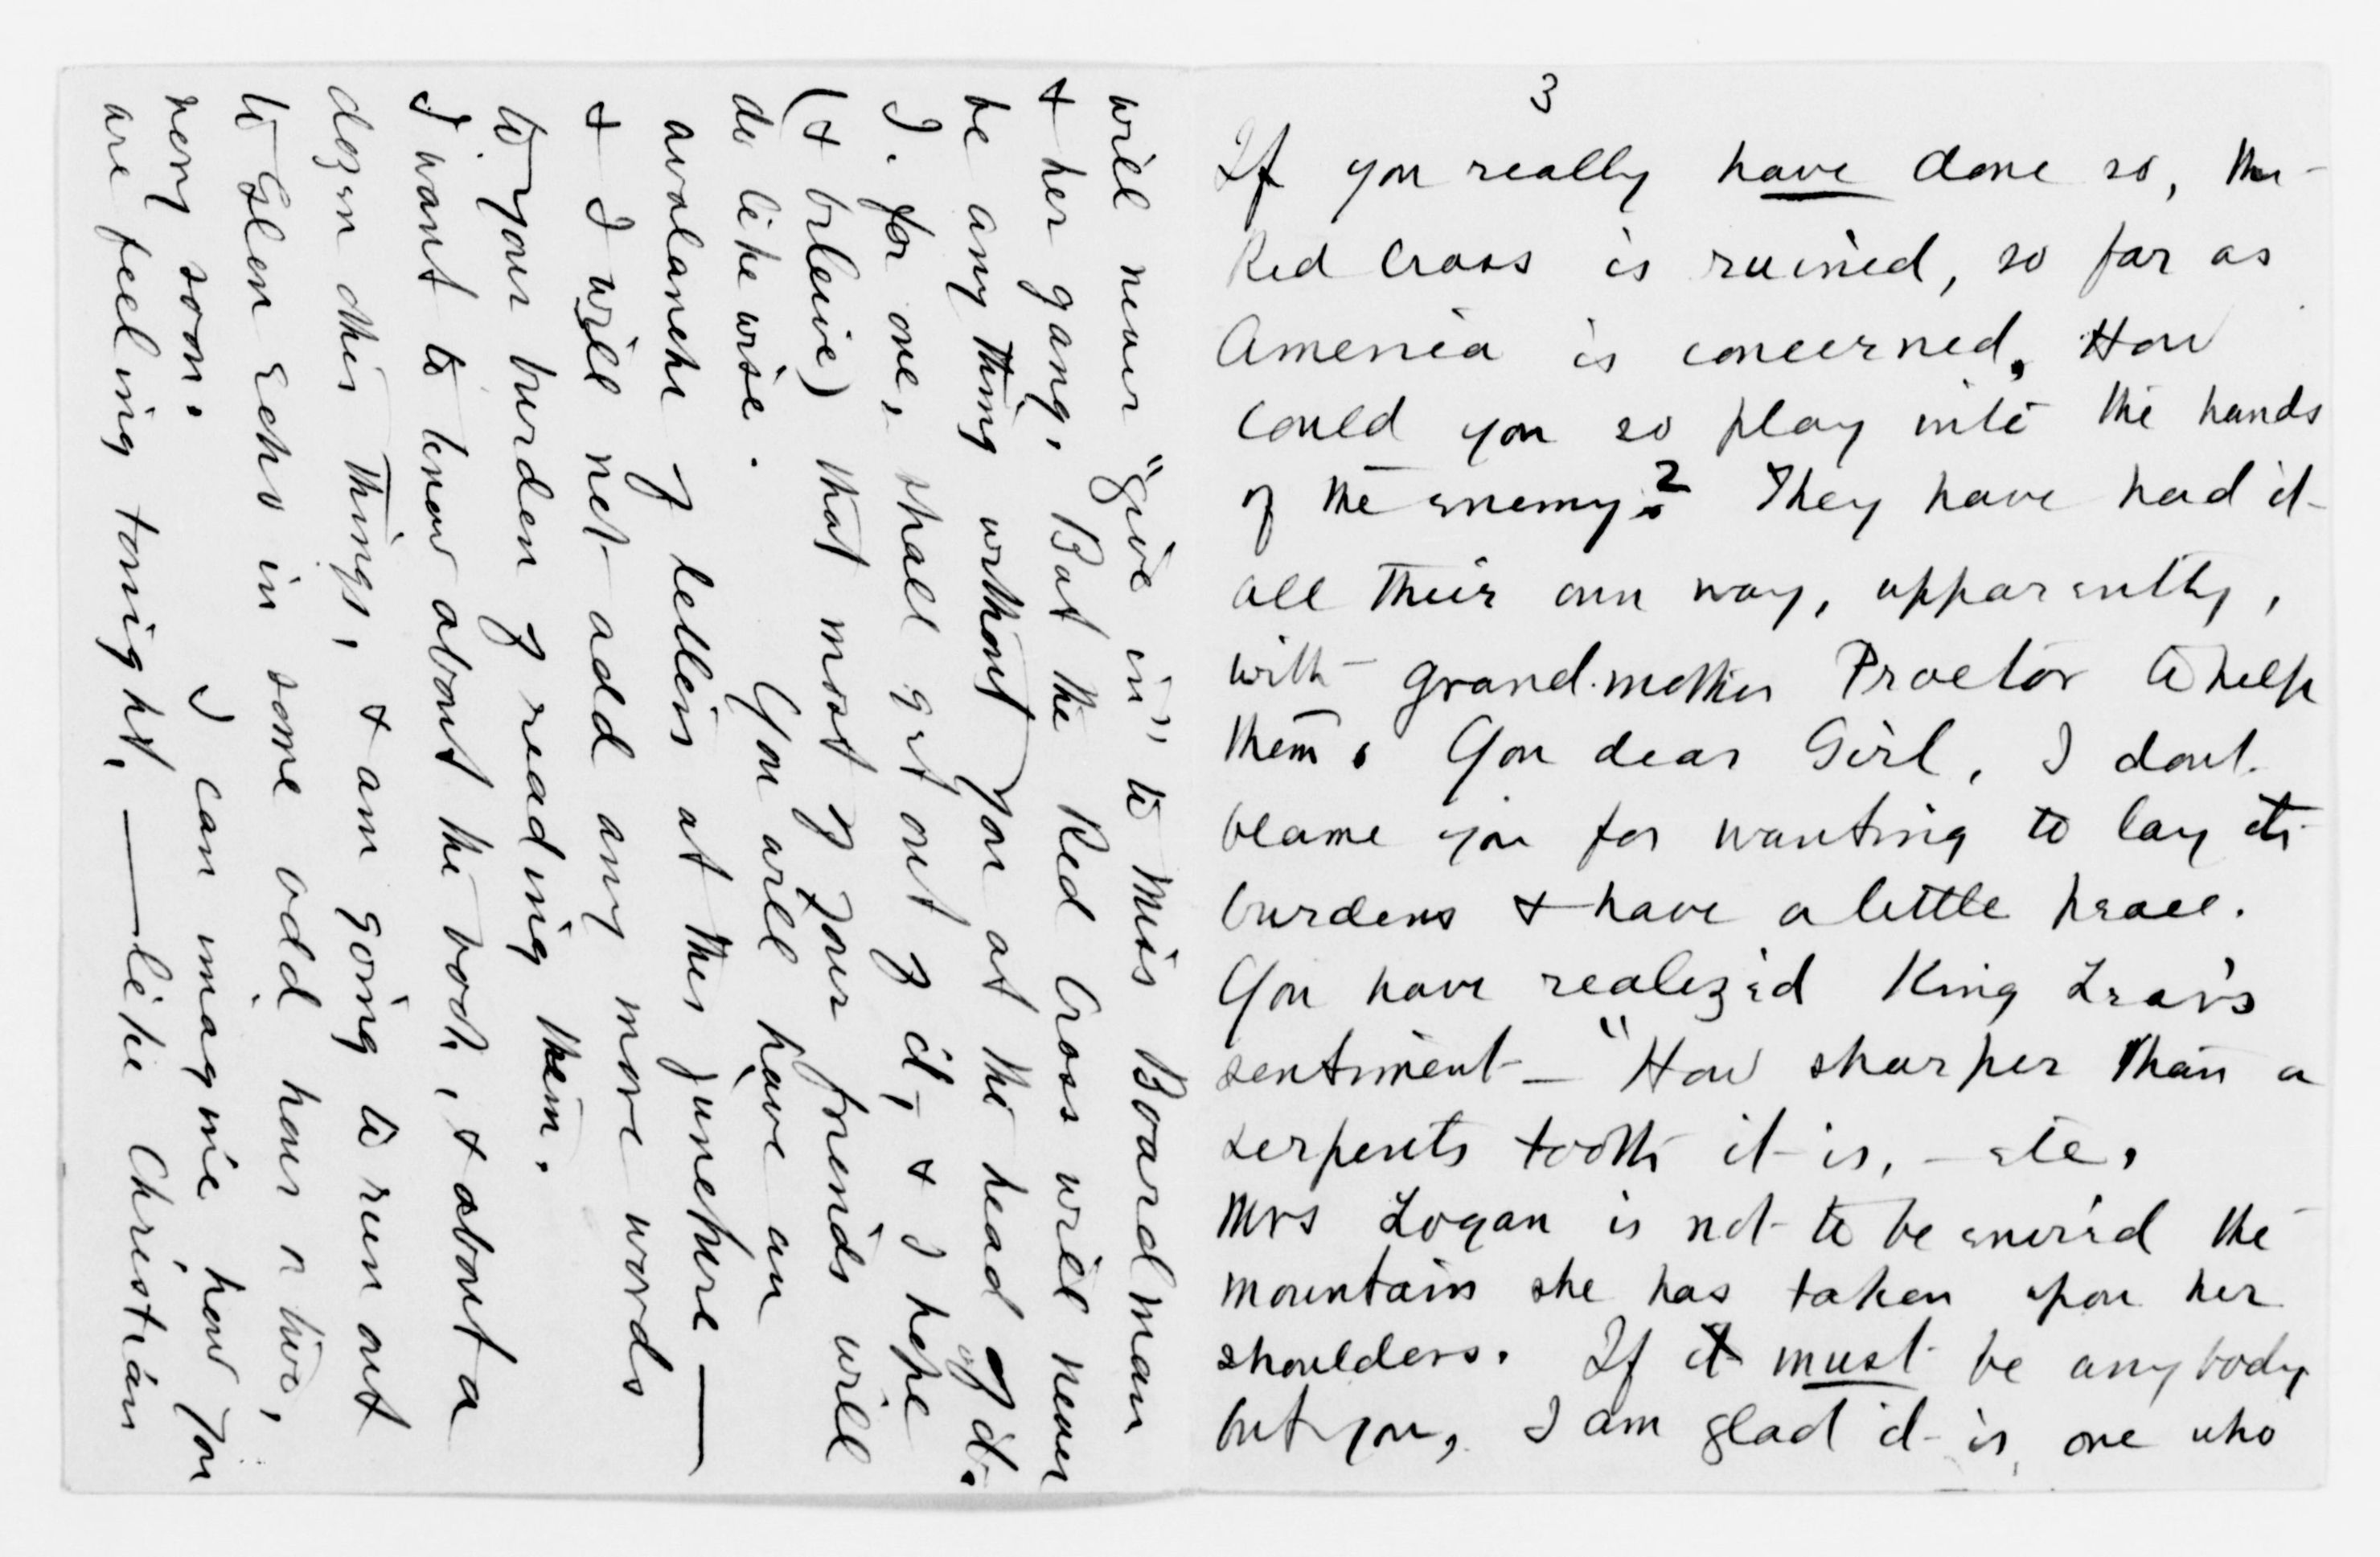 3
If you really have done so, the
Red Cross is ruined, so far as
America is concerned. How
could you so play into the hands
of the enemy? They have had it
all their own way, apparently,
with grand-mother Proctor to help
them. You dear Girl, I dont
blame you for wanting to lay its
burdens & have a little peace.
You have realized King Lear's
sentiment — "How sharper than a
serpents tooth it is, — etc.
Mrs Logan is not to be envied the
mountain she has taken upon her
shoulders. If it must be anybody
but you, I am glad it is one who
will never "give in" to Miss Boardman
& her gang. But the Red Cross will never
be any thing without you at the head of it.
I. for one, shall get out of it, & I hope
(& beleive) that most of your friends will
do likewise. You will have an
avalanche of letters at this juncture —
& I will not add any more words
to your burden of reading them.
I want to know about the book, & about a
dozen other things, & am going to run out
to Glen Echo in some odd hour or two,
very soon. I can imagine how you
are feeling tonight, — like Christian